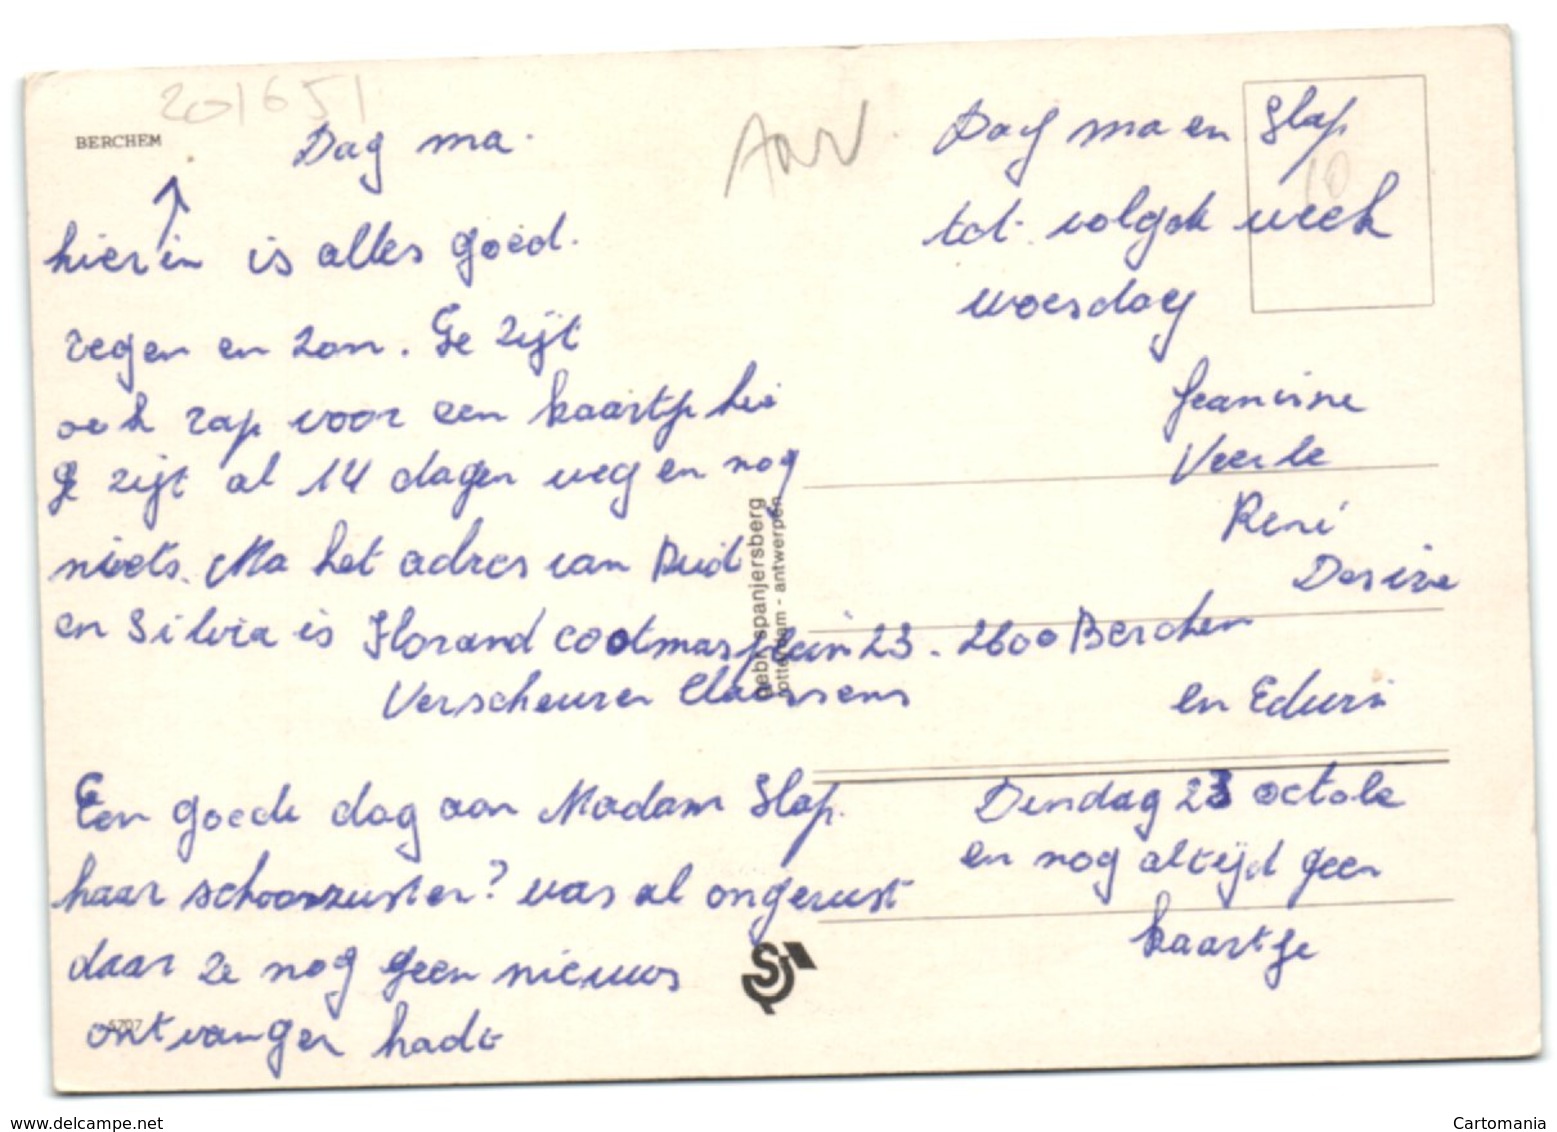 201651
BERCHEM
Dag ma.
hier in is alles goed.
regen en zon. Ge zijt
ook rap voor een kaartje hé
ge zijt al 14 dagen weg en nog
niets. Ma het adres van Ruid
en Silvia is Florand cootmasplein 23. 2600 Berchem
Verscheuren Claessens
Een goede dag aan Madam Slap.
haar schoonzuster? was al ongerust
daar ze nog geen nieuws
ontvangen hadt
5707
gebr. spanjersberg
rotterdam - antwerpen
SJ
Dag ma en Slap
10
tot volgde week
woesdag
Jeannine
Veerle
René
Desiré
en Edwin
Dendag 23 octobe
en nog altijd geen
kaartje
www.delcampe.net
Cartomania